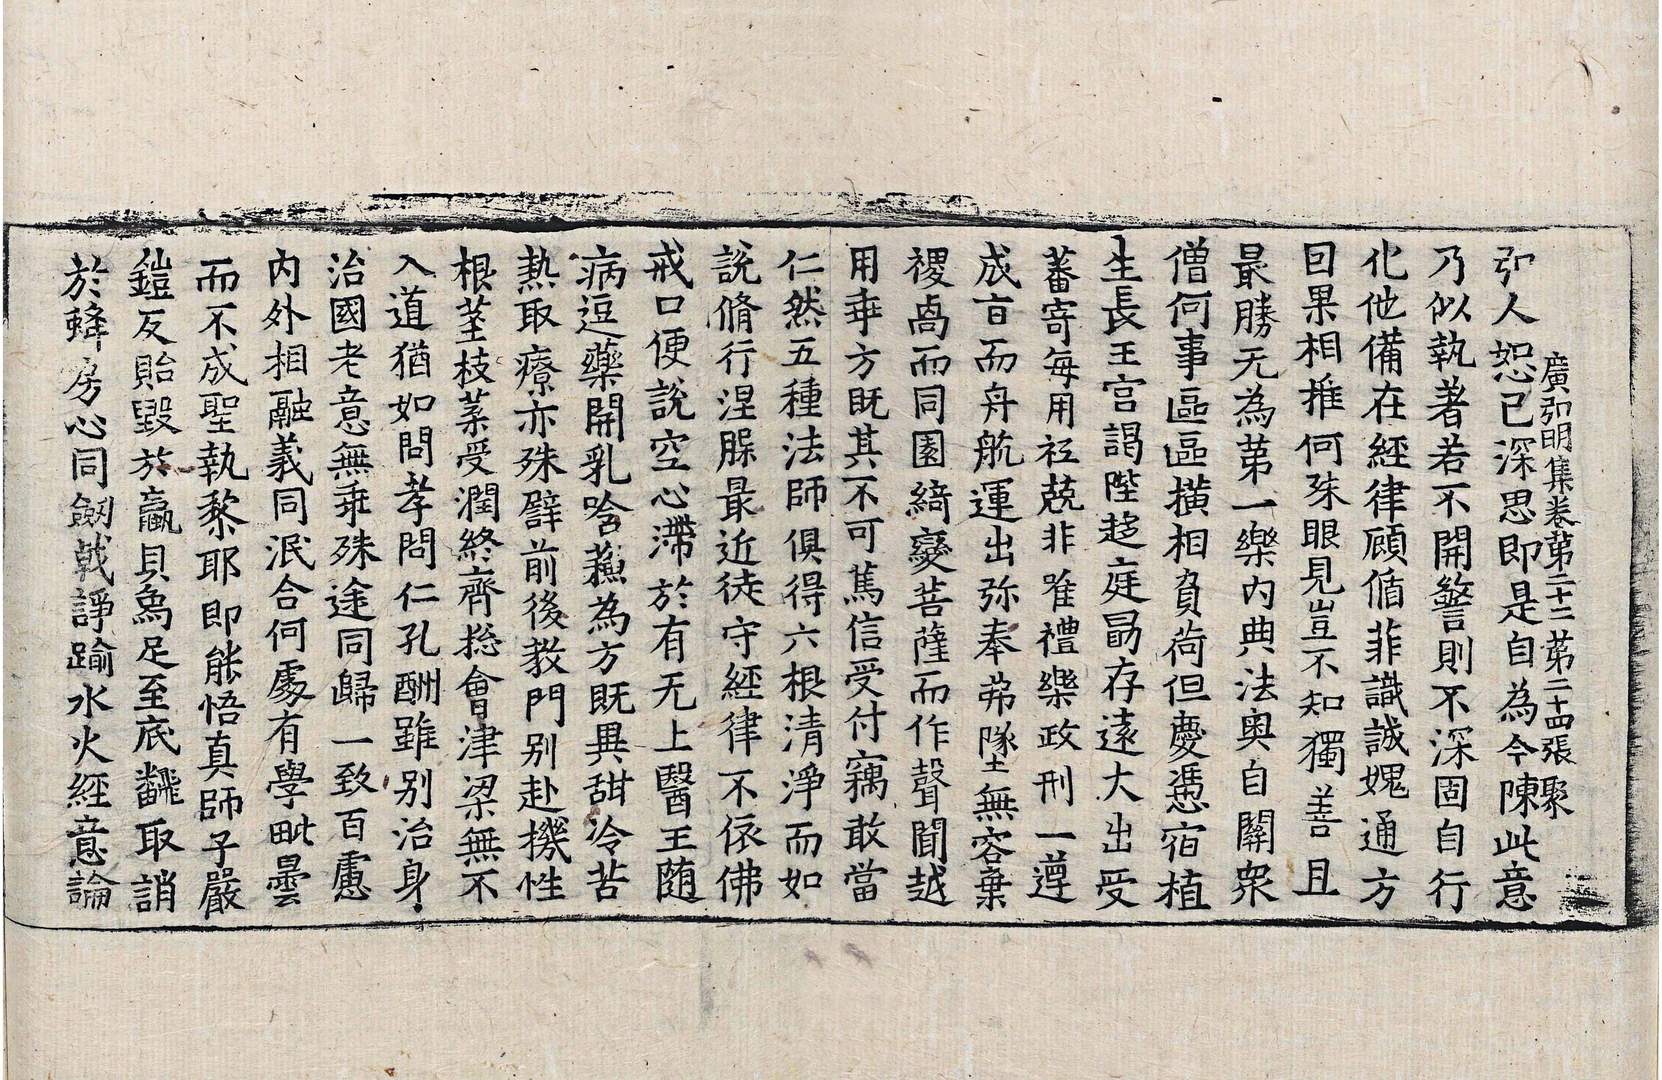 廣弘明集卷第二十二 第二十四張 聚
弘人恕已深思即是自為今陳此意
乃似執著若不開警則不深固自行
化他備在經律顧循菲識誠媿通方
因果相推何殊眼見豈不知獨善且
最勝无為第一樂內典法奧自關衆
僧何事區區撗相負荷但慶憑宿植
生長王宮謁陛趍庭勗存遠大出受
蕃寄每用祗兢非唯禮樂政刑一遵
成旨而舟航運出弥奉弗墜無容棄
禝卨而同園綺變菩薩而作聲聞越
用乖方既其不可篤信受付竊敢當
仁然五種法師俱得六根清淨而如
說脩行涅槃最近徒守經律不依佛
戒口便說空心滯於有无上醫王随
病逗藥開乳唅蘓為方既異甜冷苦
熱取療亦殊譬前後教門別赴機性
根莖枝葉受潤終齊揔會津梁無不
入道猶如問孝問仁孔酬雖別治身
治國老意無乖殊途同歸一致百慮
內外相融義同泯合何處有學毗曇
而不成聖執黎耶即能悟真師子嚴
鎧反貽毀於蠃貝鳥足至底飜取誚
於蜂房心同劒戟諍踰水火經意論